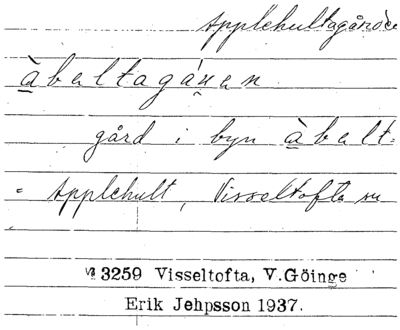 Applehultagården
àbaltagáu̯en
gård i byn àbalt-
= Applehult, Visseltofta sn
3259 Visseltofta, V.Göinge
Erik Jehpsson 1937.